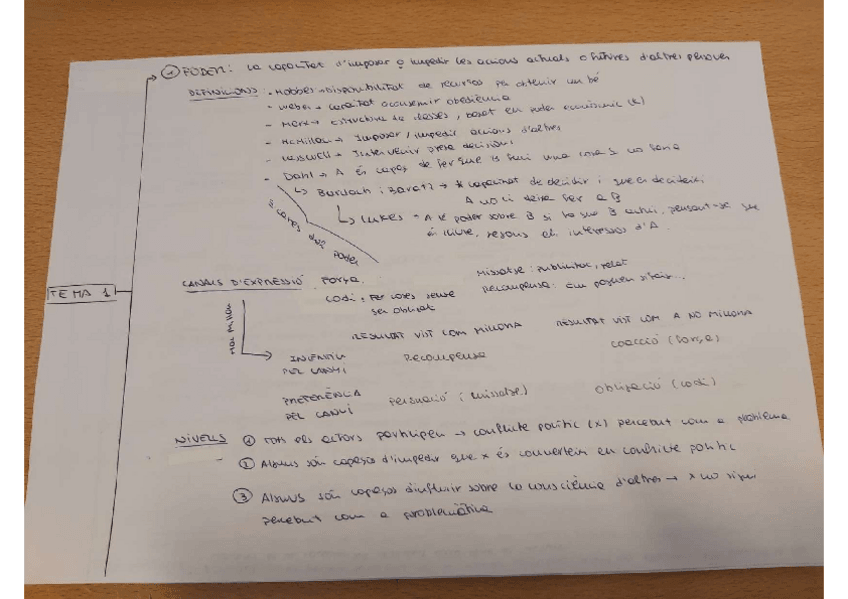 ① PODER: La capacitat d'imposar o impedir les accions actuals o futures d'altres persones
DEFINICIONS: • Hobbes → Disponibilitat de recursos per obtenir un bé
- Weber → capacitat aconseguir obediència
- Marx → estructura de classes, basat en poder econòmic (K)
- McMillan → Imposar / impedir accions d'altres
- Lasswell → Intervenir presa decisions
- Dahl → A és capaç de fer que B faci una cosa q no faria
↳ Bachrach i Baratz → * capacitat de decidir i que es decideixi
A no li deixa fer a B
↳ Lukes → A té poder sobre B si fa que B actuï, pensant-se que
és lliure, segons els interessos d'A.
3 cares del poder
TEMA 1
CANALS D'EXPRESSIÓ
Força
Missatge: publicitat, relat
Codi: Fer coses sense
ser obligat
Recompensa:
Mac Millan
RESULTAT VIST COM MILLORA
RESULTAT VIST COM A NO MILLORA
INCENTIU
PEL CANVI
Recompensa
coacció (força)
PREFERÈNCIA
PEL CANVI
Persuació (missatge)
Obligació (codi)
NIVELLS ① Tots els actors participen → conflicte polític (x) percebut com a problema
② Alguns són capaços d'impedir que x es converteixi en conflicte polític
③ Alguns són capaços d'influir sobre la consciència d'altres → x no sigui
percebut com a problemàtica